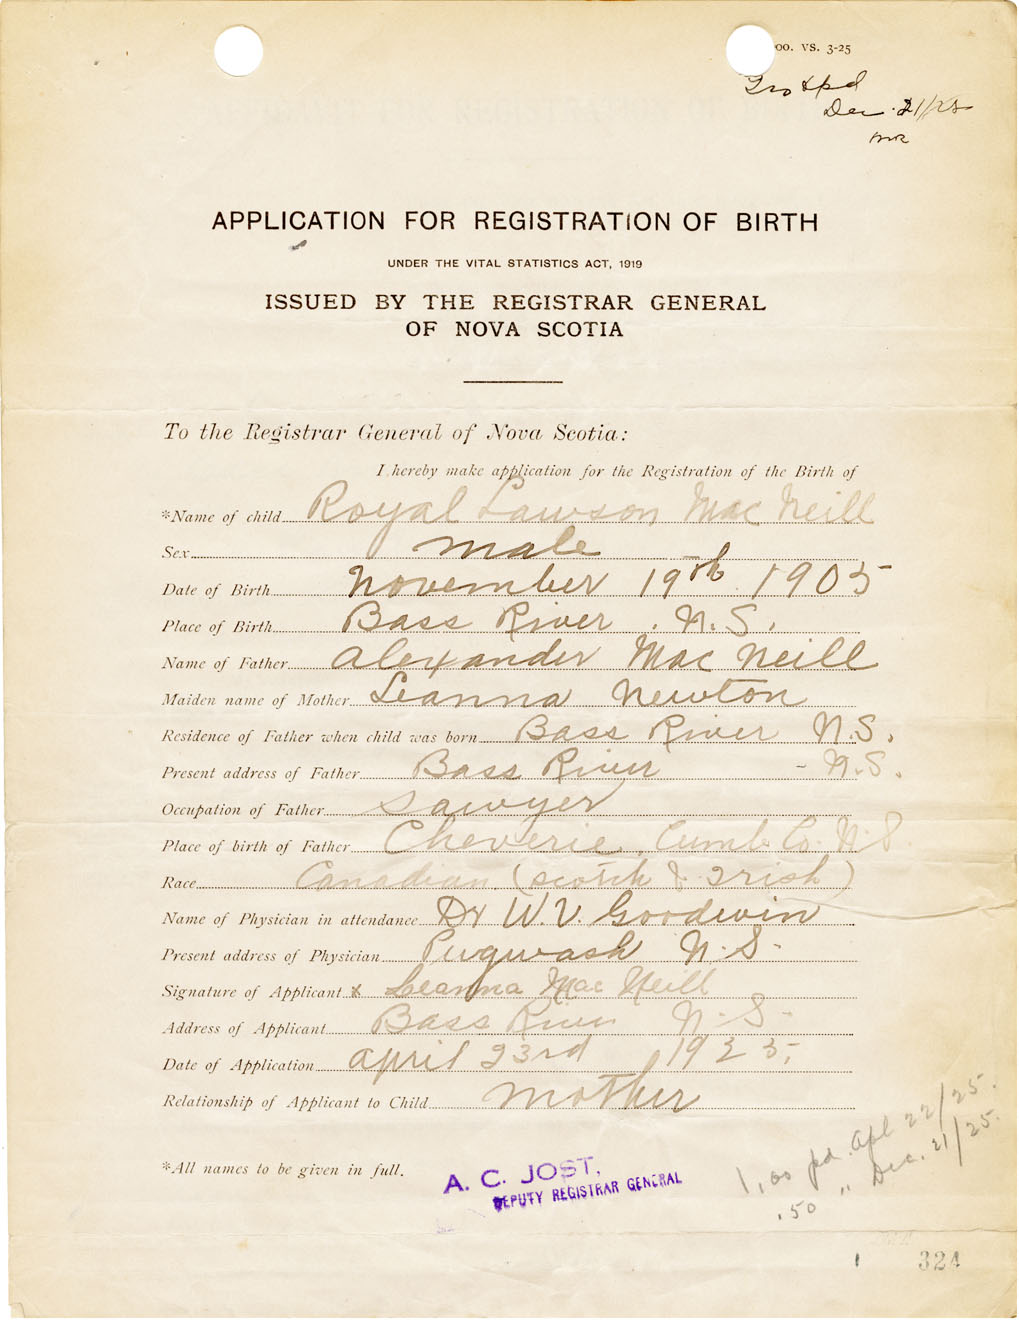 00. VS. 3-25
Dec. 21/25
APPLICATION FOR REGISTRATION OF BIRTH
UNDER THE VITAL STATISTICS ACT, 1919
ISSUED BY THE REGISTRAR GENERAL
OF NOVA SCOTIA
To the Registrar General of Nova Scotia:
I hereby make application for the Registration of the Birth of
*Name of child Royal Lawson Mac Neill
Sex male
Date of Birth November 19th 1905
Place of Birth Bass River. N.S.
Name of Father Alexander Mac Neill
Maiden name of Mother Leanna Newton
Residence of Father when child was born Bass River N.S.
Present address of Father Bass River - N.S.
Occupation of Father Sawyer
Place of birth of Father Cheverie, Cumb. Co. N.S
Race Canadian (scotch & Irish)
Name of Physician in attendance Dr W.V. Goodwin
Present address of Physician Pugwash N.S.
Signature of Applicant x Leanna Mac Neill
Address of Applicant Bass River N.S.
Date of Application April 23rd 1925,
Relationship of Applicant to Child mother
*All names to be given in full.
A. C. JOST,
DEPUTY REGISTRAR GENERAL
1.00 pd. Apl 22/25.
.50 " Dec. 21/25.
324